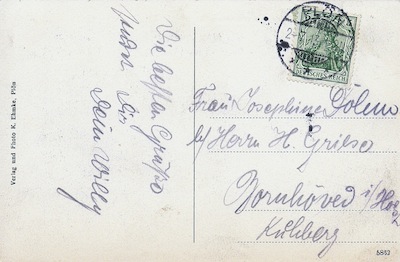 Verlag und Photo K. Ehmke, Plön
Die besten Grüße
sendet Dir
Dein Willy
PLÖN
DEUTSCHES REICH
Frau Josephine Dölem
b/ Herrn H. Griese
Bornhöved i/Holst
Kuhberg
5842